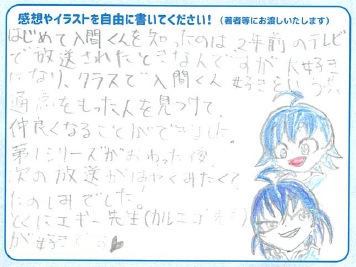 感想やイラストを自由に書いてください! (著者等にお渡しいたします)
はじめて入間くんを知ったのは2年前のテレビ
で放送されたときなんですが大好き
になり、クラスで入間くん好きという
通点をもった人を見つけて、
仲良くなることができました
第1シリーズがおわった後
次の放送がはやくみたくて
たのしみでした!
とくにエギー先生(カルエゴ先生)
が好きです